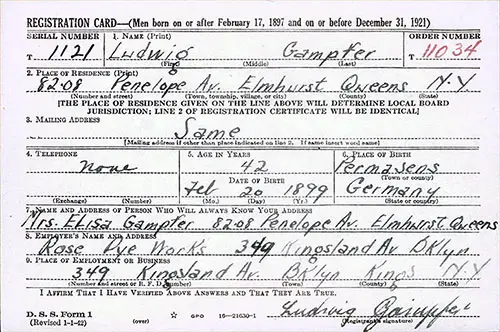 REGISTRATION CARD—(Men born on or after February 17, 1897 and on or before December 31, 1921)
SERIAL NUMBER 1. NAME (Print) ORDER NUMBER
T 1121 Ludwig Gampfer T 11034
(First) (Middle) (Last)
2. PLACE OF RESIDENCE (Print)
82-08 Penelope Av. Elmhurst Queens N.Y.
(Number and street) (Town, township, village, or city) (County) (State)
[THE PLACE OF RESIDENCE GIVEN ON THE LINE ABOVE WILL DETERMINE LOCAL BOARD
JURISDICTION; LINE 2 OF REGISTRATION CERTIFICATE WILL BE IDENTICAL]
3. MAILING ADDRESS
Same
[Mailing address if other than place indicated on line 2. If same insert word same]
4. TELEPHONE 5. AGE IN YEARS 6. PLACE OF BIRTH
none 42 Permasens
DATE OF BIRTH (Town or county)
Feb 20 1899 Germany
(Exchange) (Number) (Mo.) (Day) (Yr.) (State or country)
7. NAME AND ADDRESS OF PERSON WHO WILL ALWAYS KNOW YOUR ADDRESS
Mrs. Elisa Gampfer 82-08 Penelope Av. Elmhurst Queens
8. EMPLOYER'S NAME AND ADDRESS
Rose Dye Works 349 Kingsland Av BKlyn.
9. PLACE OF EMPLOYMENT OR BUSINESS
349 Kingsland Av. BKlyn Kings N.Y.
(Number and street or R. F. D. number) (Town) (County) (State)
I AFFIRM THAT I HAVE VERIFIED ABOVE ANSWERS AND THAT THEY ARE TRUE.
D. S. S. Form 1
(Revised 1-1-42) (over) GPO 16—21630-1 Ludwig Gampfer
(Registrant's signature)